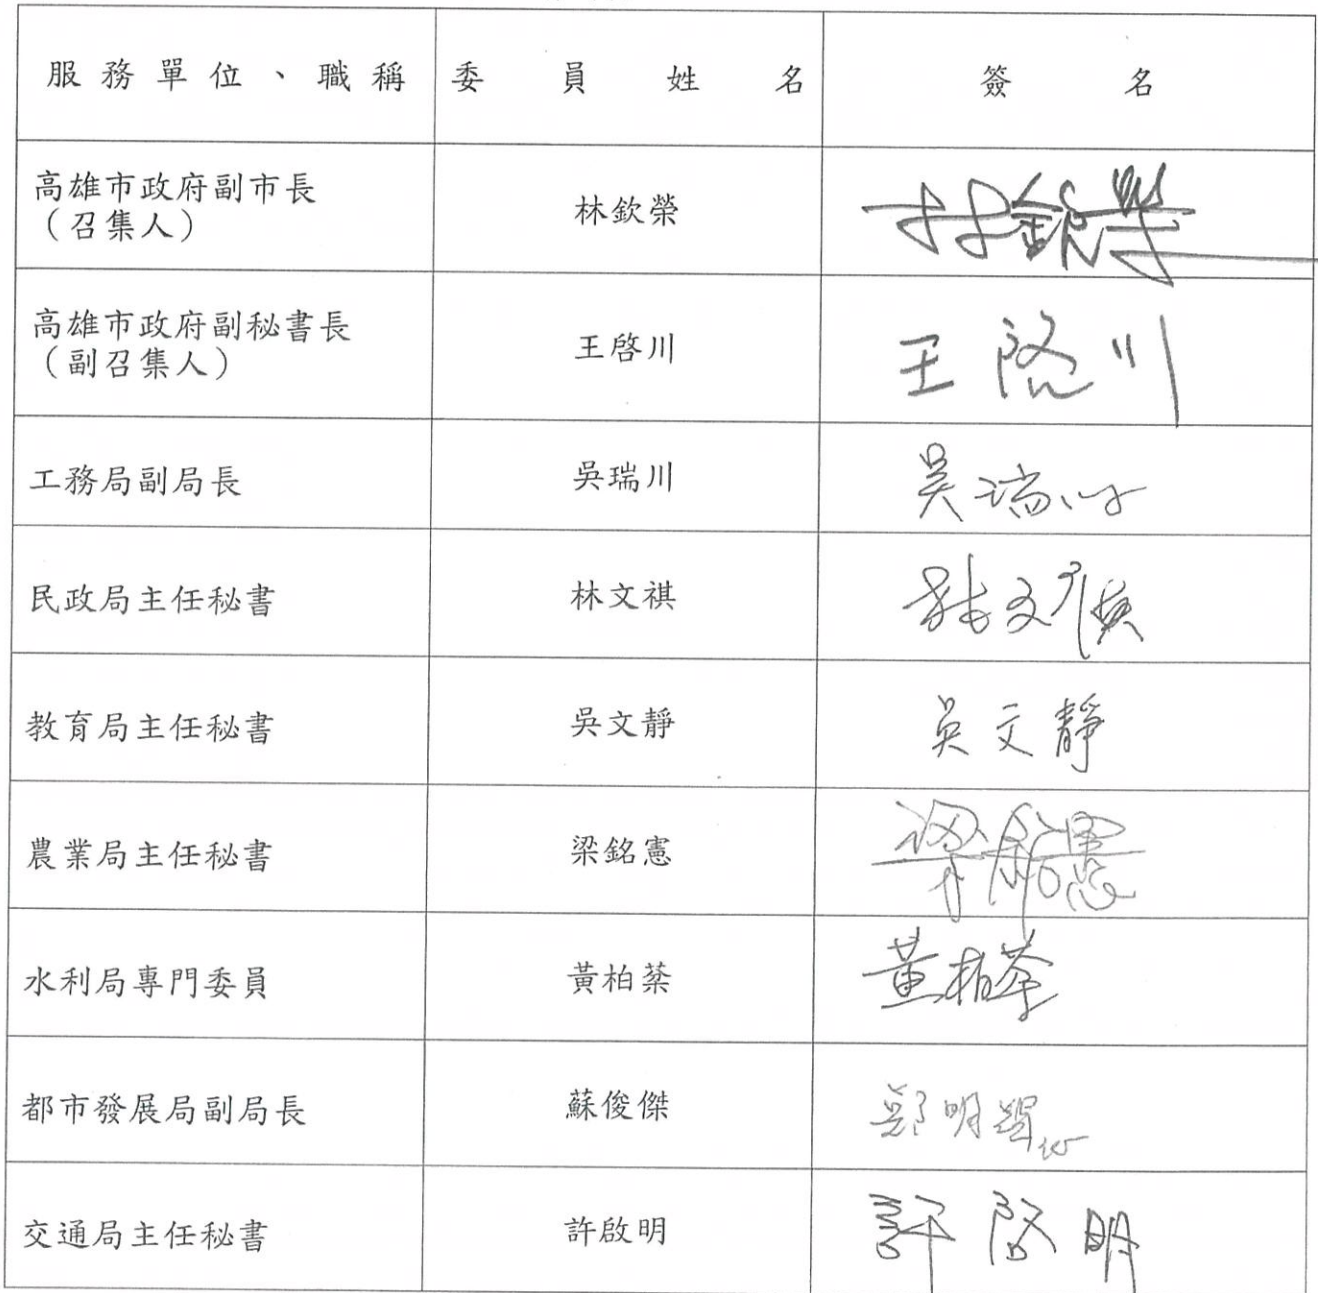 服務單位、職稱 委員姓名 簽名
高雄市政府副市長
（召集人） 林欽榮 林欽榮
高雄市政府副秘書長
（副召集人） 王啓川 王啓川
工務局副局長 吳瑞川 吳瑞川
民政局主任秘書 林文祺
教育局主任秘書 吳文靜 吳文靜
農業局主任秘書 梁銘憲 梁銘憲
水利局專門委員 黃柏棻 黃柏棻
都市發展局副局長 蘇俊傑
交通局主任秘書 許啟明 許啟明